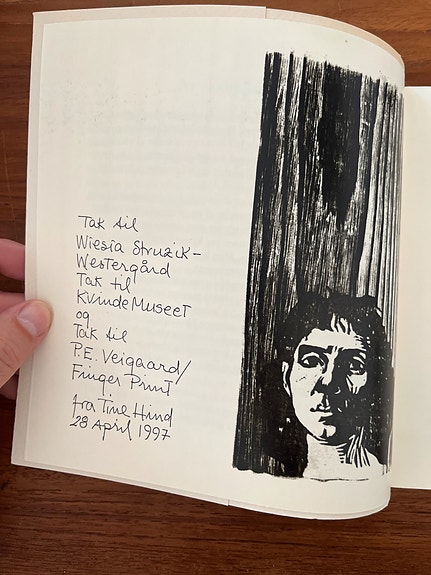 Tak til
Wiesia Struzik-
Westergård
Tak til
KvindeMuseet
og
Tak til
P.E. Veigaard/
Finger Print
fra Tine Hind
28 April 1997